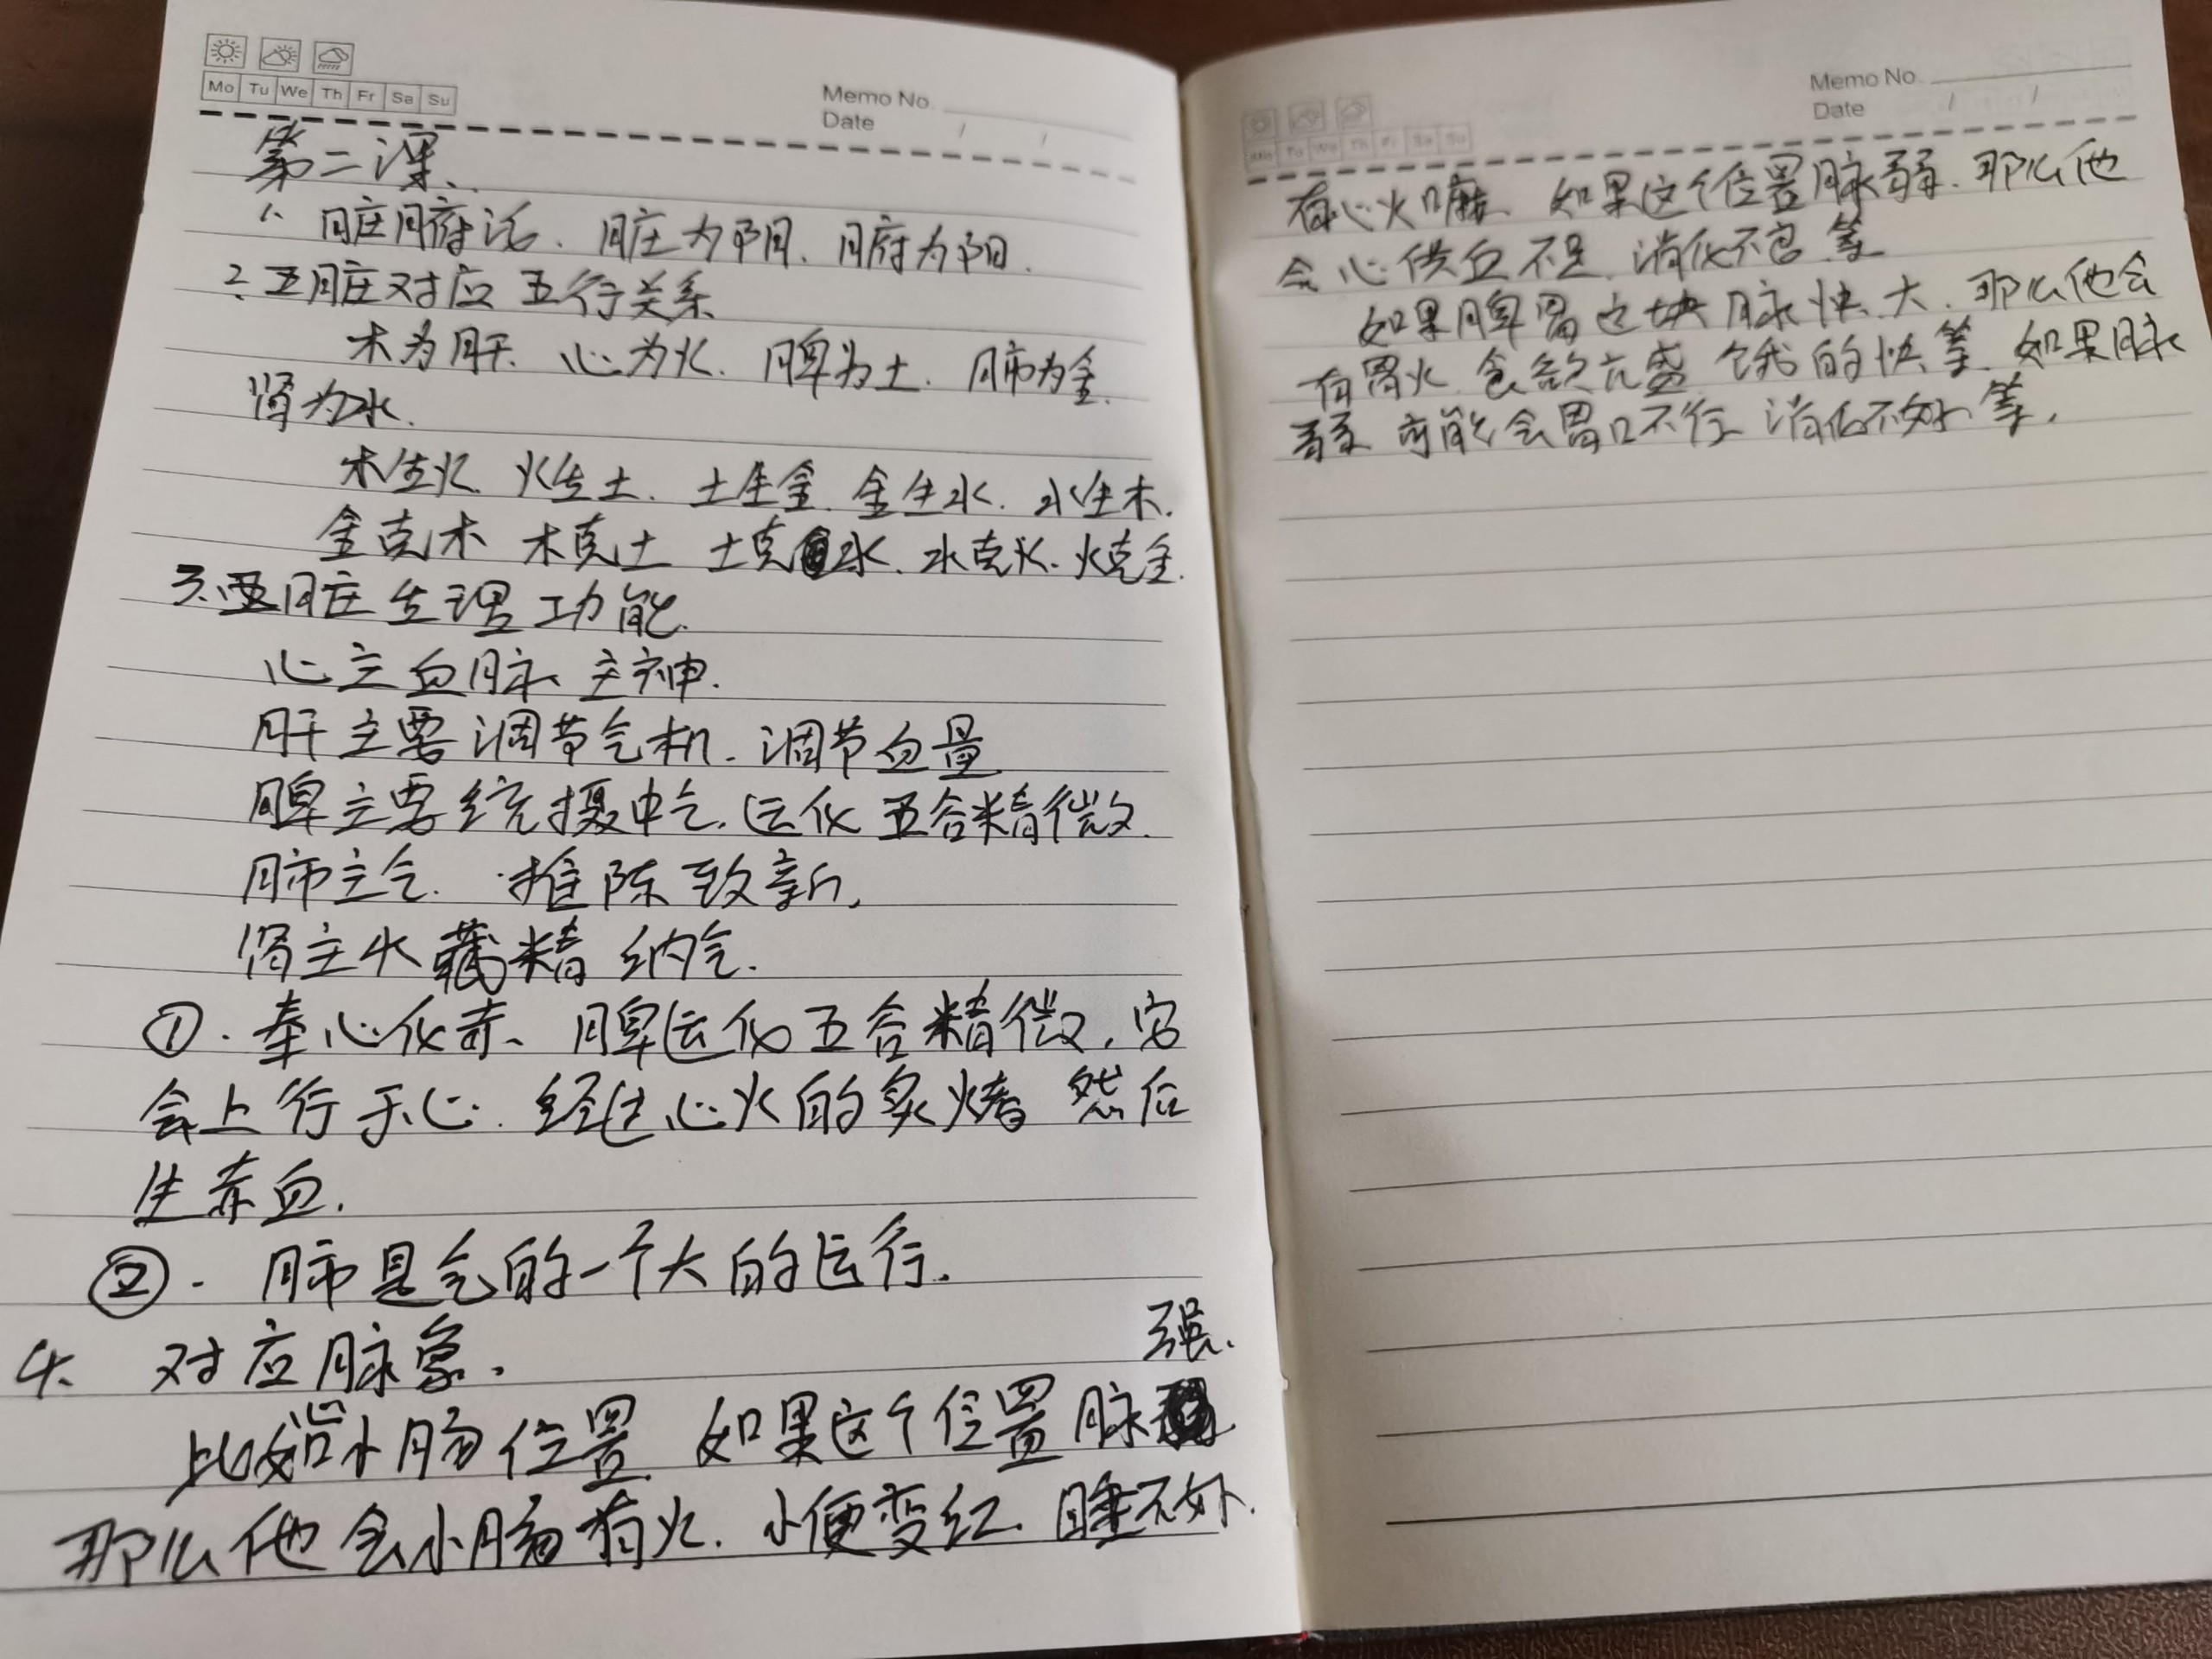 Mo Tu We Th Fr Sa Su
Memo No.
Date / /
第二课、
1、脏腑活、脏为阴、腑为阳.
2、五脏对应五行关系
木为肝、心为火、脾为土、肺为金.
肾为水.
木生火、火生土、土生金、金生水、水生木.
金克木 木克土 土克水、水克火、火克金.
3、五脏生理功能.
心主血脉 主神.
肝主要调节气机、调节血量
脾主要统摄中气.运化五谷精微.
肺主气. 推陈致新.
肾主水 藏精 纳气.
①.奉心化赤、脾运化五谷精微,它
会上行于心.经过心火的炙烤 然后
生赤血.
②.肺是气的一个大的运行.
4、对应脉象.
强.
比如心小肠位置 如果这个位置脉
那么他会小肠有火.小便变红.睡不好.
Memo No.
Date / /
Mo Tu We Th Fr Sa Su
有心火 如果这个位置脉弱、那么他
会心供血不足、消化不良等
如果脾胃这块脉快大、那么他会
有胃火 食欲亢盛 饿的快等 如果脉
弱 可能会胃口不行 消化不好等.